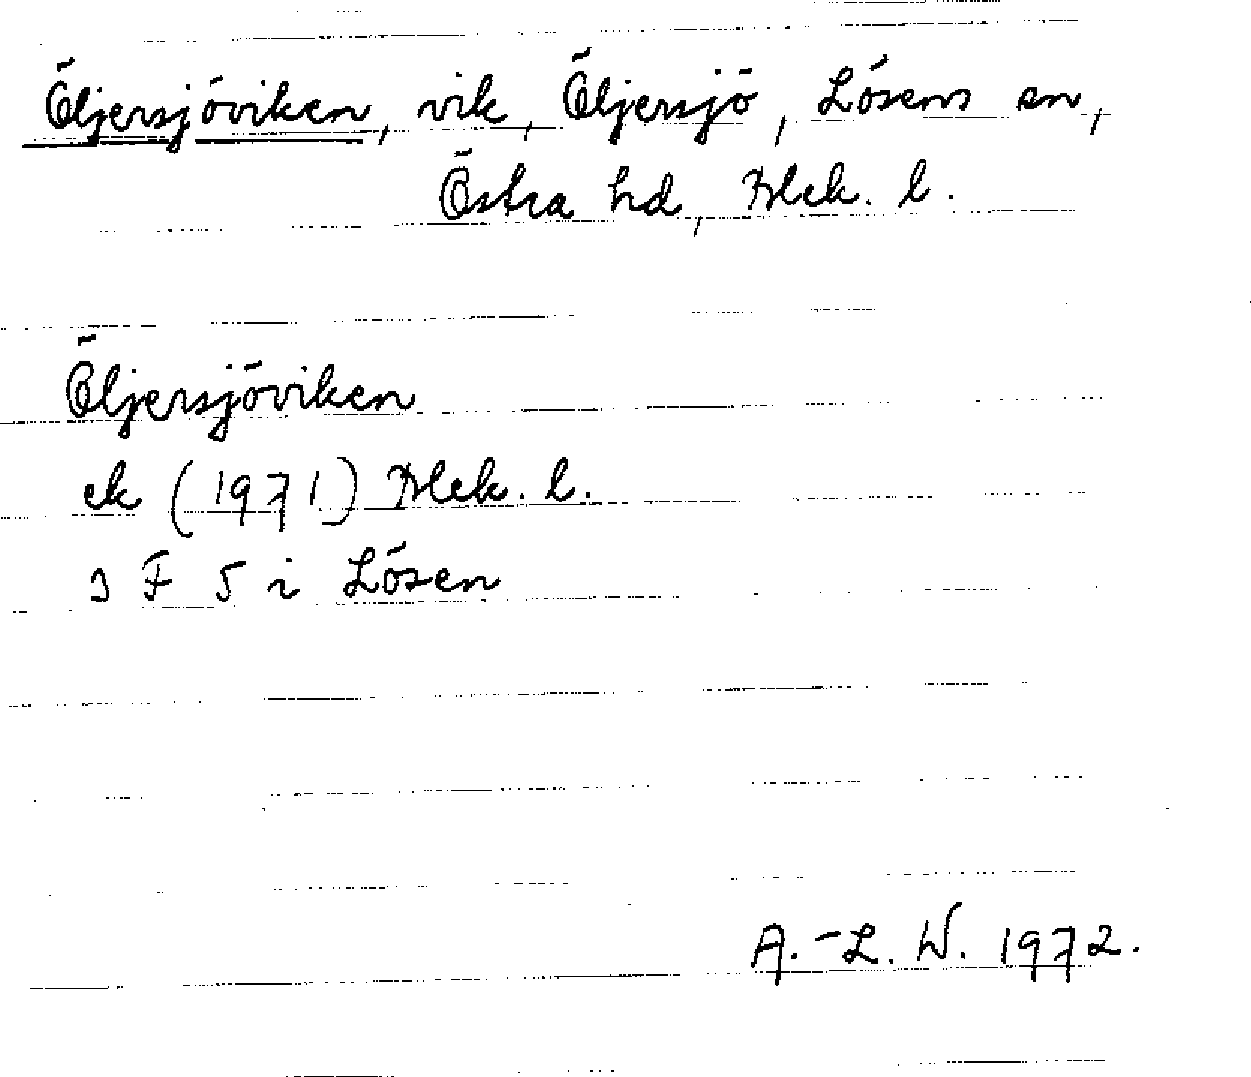 Öljersjöviken, vik, Öljersjö, Lösens sn,
Östra hd, Blek. l.
Öljersjöviken
ek (1971) Blek. l.
3 F 5 i Lösen
A.-L. W. 1972.